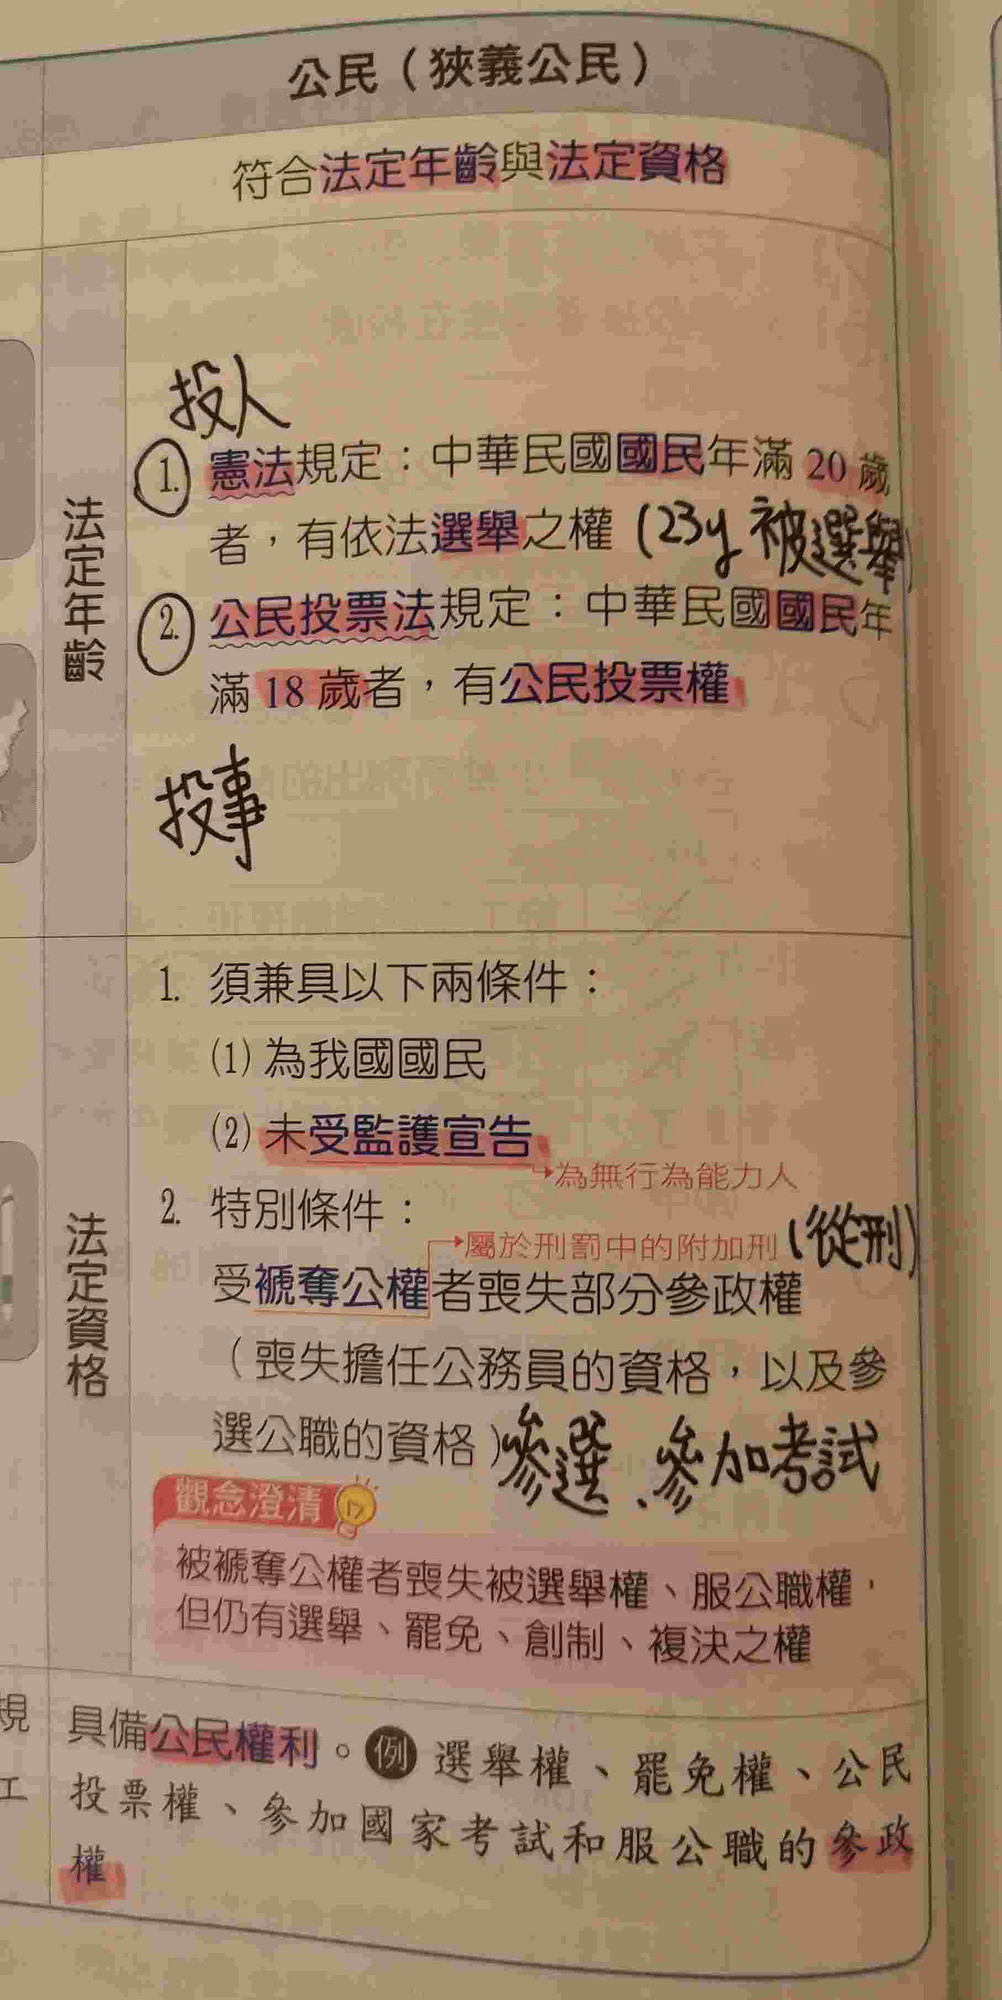 公民（狹義公民）
符合法定年齡與法定資格
法定年齡
投人
1. 憲法規定：中華民國國民年滿 20 歲
者，有依法選舉之權（23y 被選舉）
2. 公民投票法規定：中華民國國民年
滿 18 歲者，有公民投票權
投事
法定資格
1. 須兼具以下兩條件：
(1) 為我國國民
(2) 未受監護宣告
為無行為能力人
2. 特別條件：
屬於刑罰中的附加刑（從刑）
受褫奪公權者喪失部分參政權
（喪失擔任公務員的資格，以及參
選公職的資格）參選、參加考試
觀念澄清
被褫奪公權者喪失被選舉權、服公職權，
但仍有選舉、罷免、創制、複決之權
規
具備公民權利。例 選舉權、罷免權、公民
工
投票權、參加國家考試和服公職的參政
權